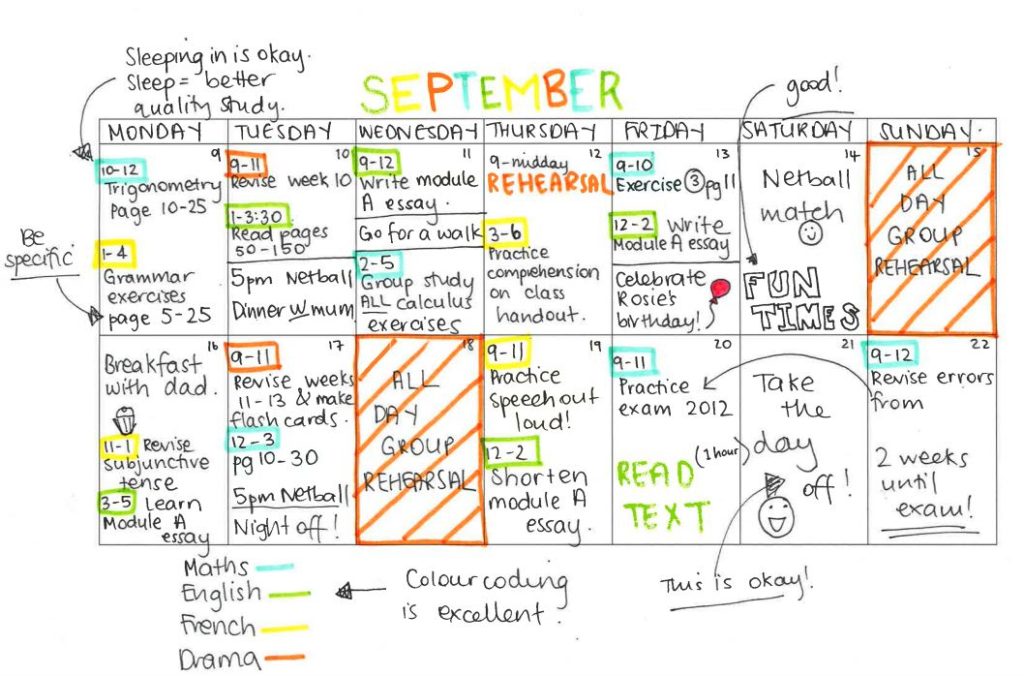 Sleeping in is okay.
Sleep = better
quality study.
SEPTEMBER
good!
MONDAY TUESDAY WEDNESDAY THURSDAY FRIDAY SATURDAY SUNDAY.
9
10-12
Trigonometry
Page 10-25
1-4
Grammar
exercises
page 5-25
Be
specific
10
9-11
Revise week 10
1-3:30
Read pages
50-150
5pm Netball
Dinner W mum
11
9-12
Write module
A essay.
Go for a walk
2-5
Group study
ALL calculus
exercises
12
9-midday
REHEARSAL
3-6
Practice
comprehension
on class
handout.
13
9-10
Exercise 3 pg 11
12-2 Write
Module A essay
Celebrate
Rosie's
birthday!
14
Netball
match
FUN
TIMES
15
ALL
DAY
GROUP
REHEARSAL
16
Breakfast
with dad.
11-1 Revise
subjunctive
tense
3-5 Learn
Module A
essay
17
9-11
Revise weeks
11-13 & make
flash cards.
12-3
pg 10-30
5pm Netball
Night off!
18
ALL
DAY
GROUP
REHEARSAL
19
9-11
Practice
speech out
loud!
12-2
Shorten
module A
essay.
20
9-11
Practice
exam 2012
READ (1 hour)
TEXT
21
Take
the
day
off!
22
9-12
Revise errors
from
2 weeks
until
exam!
Maths
English
French
Drama
Colour coding
is excellent.
This is okay!